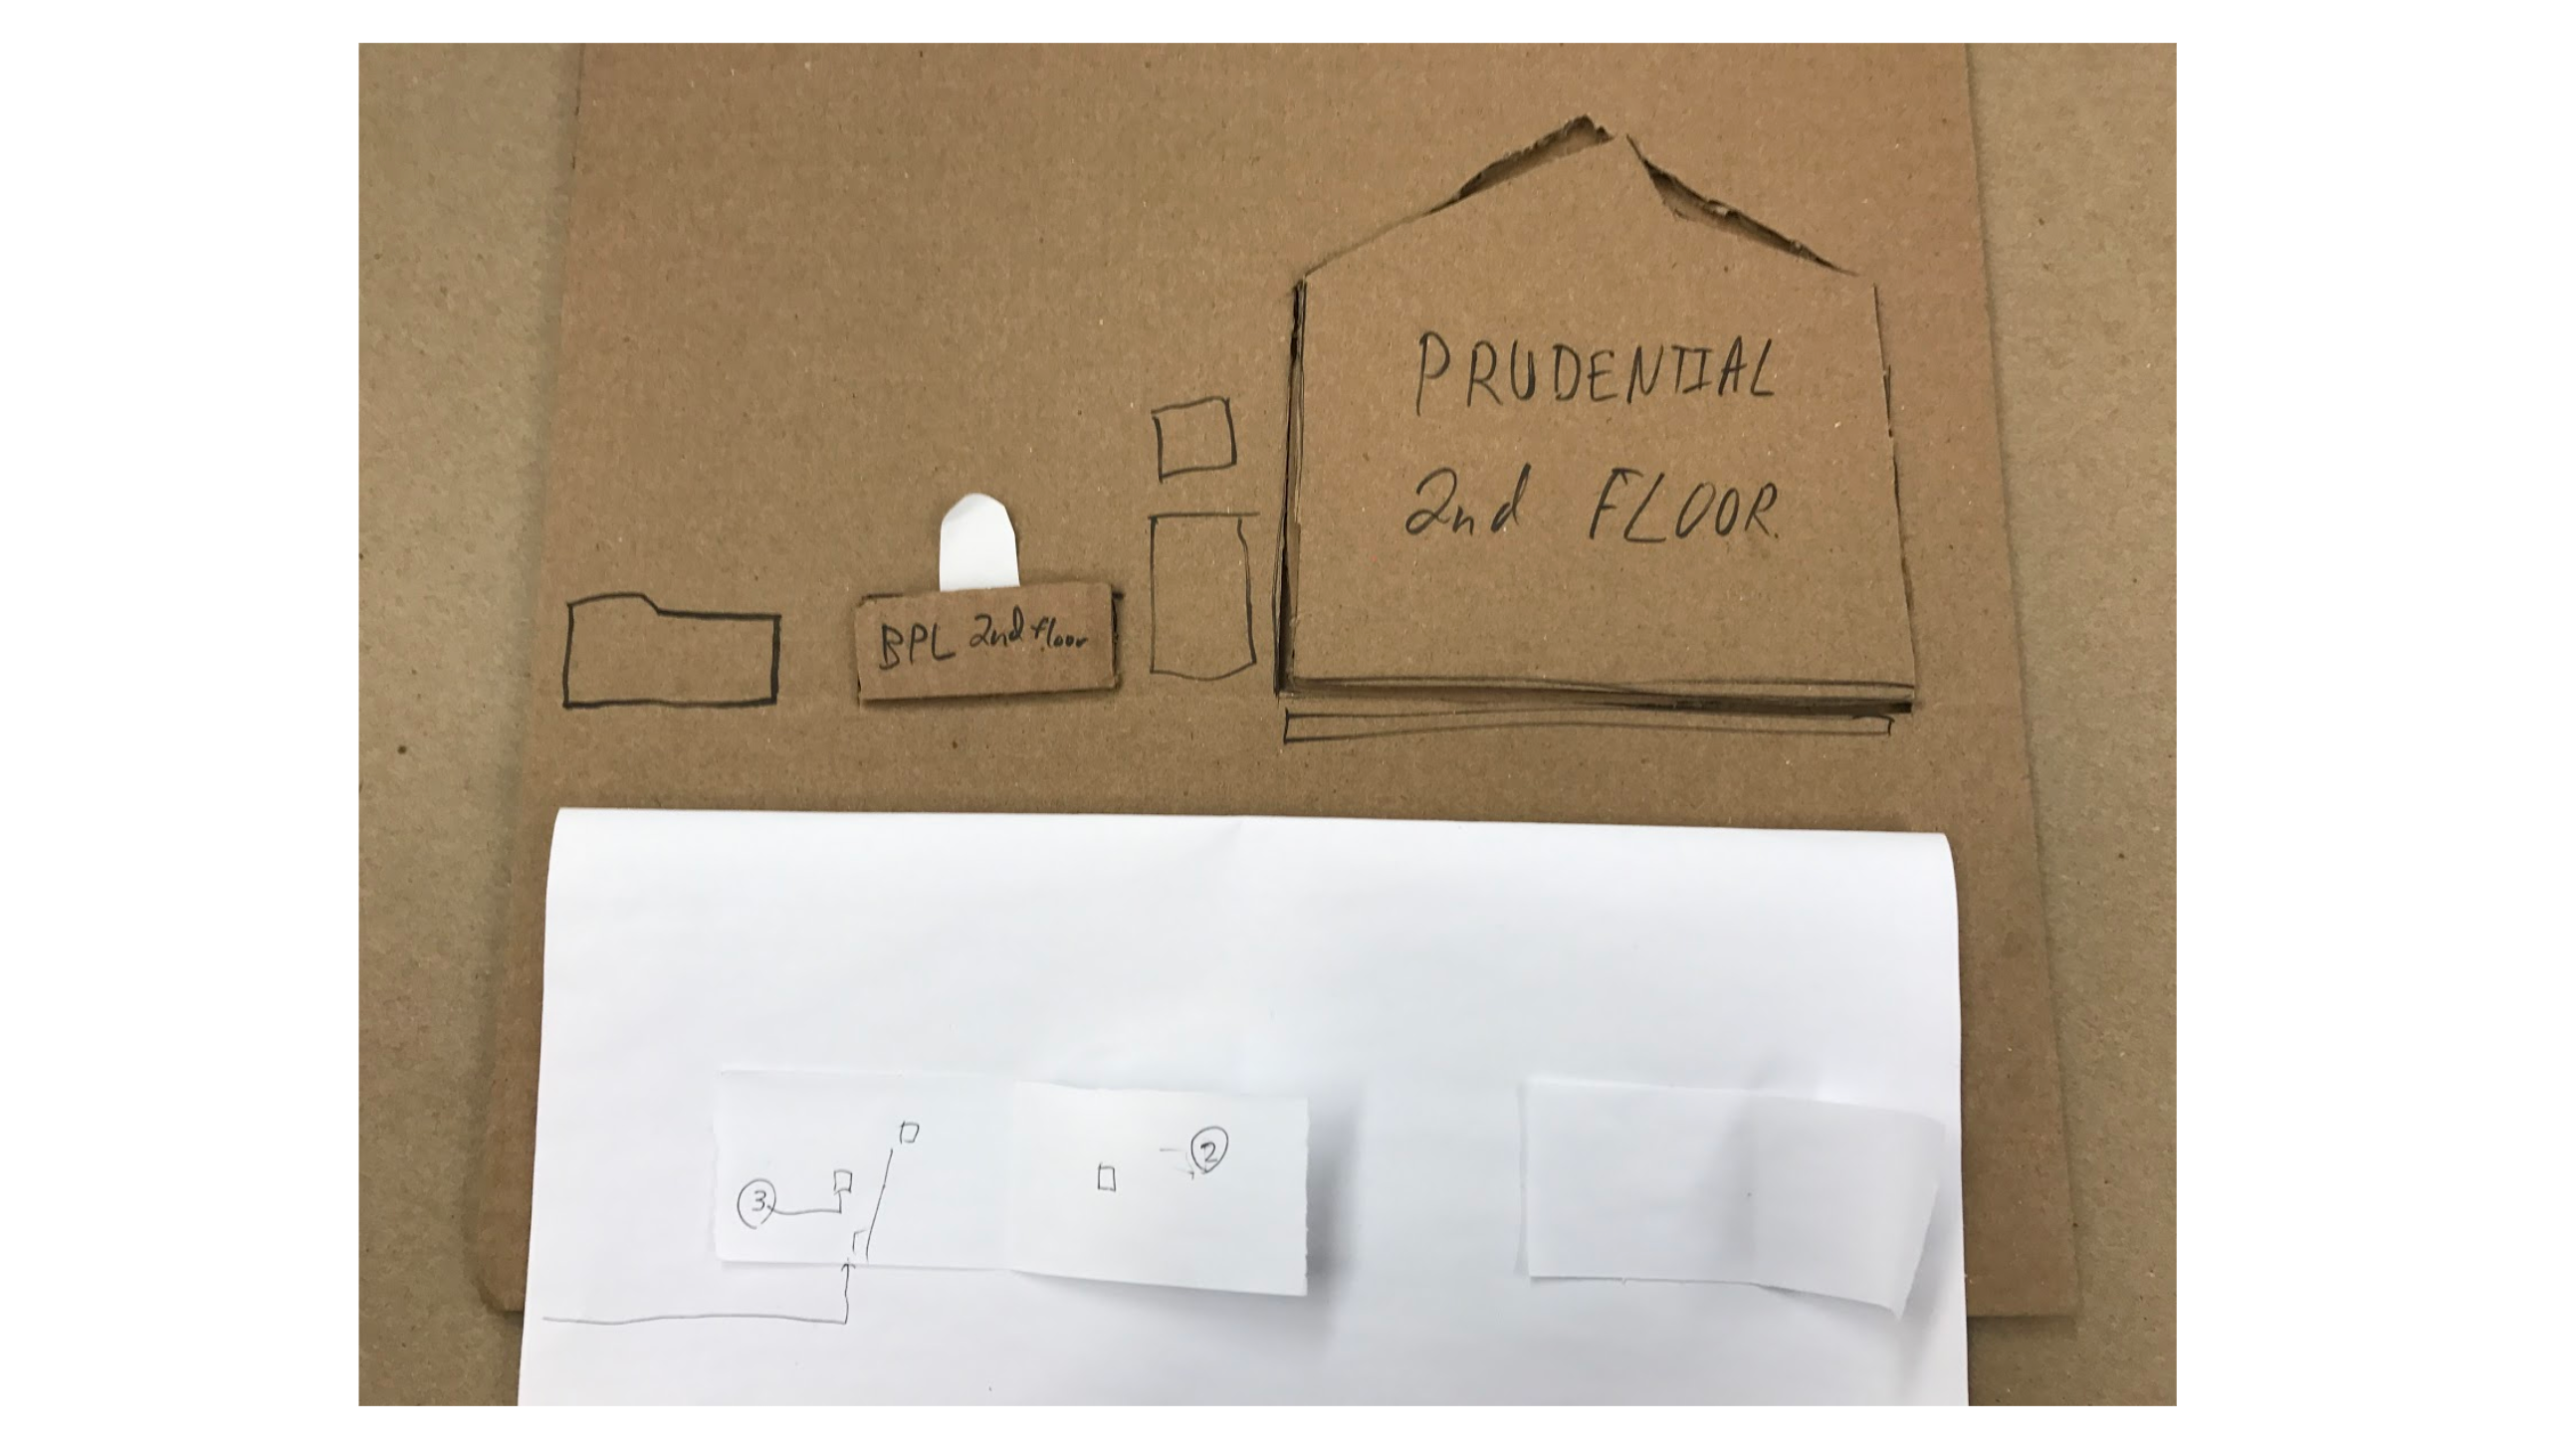 PRUDENTIAL
2nd FLOOR
BPL 2nd floor
2
3